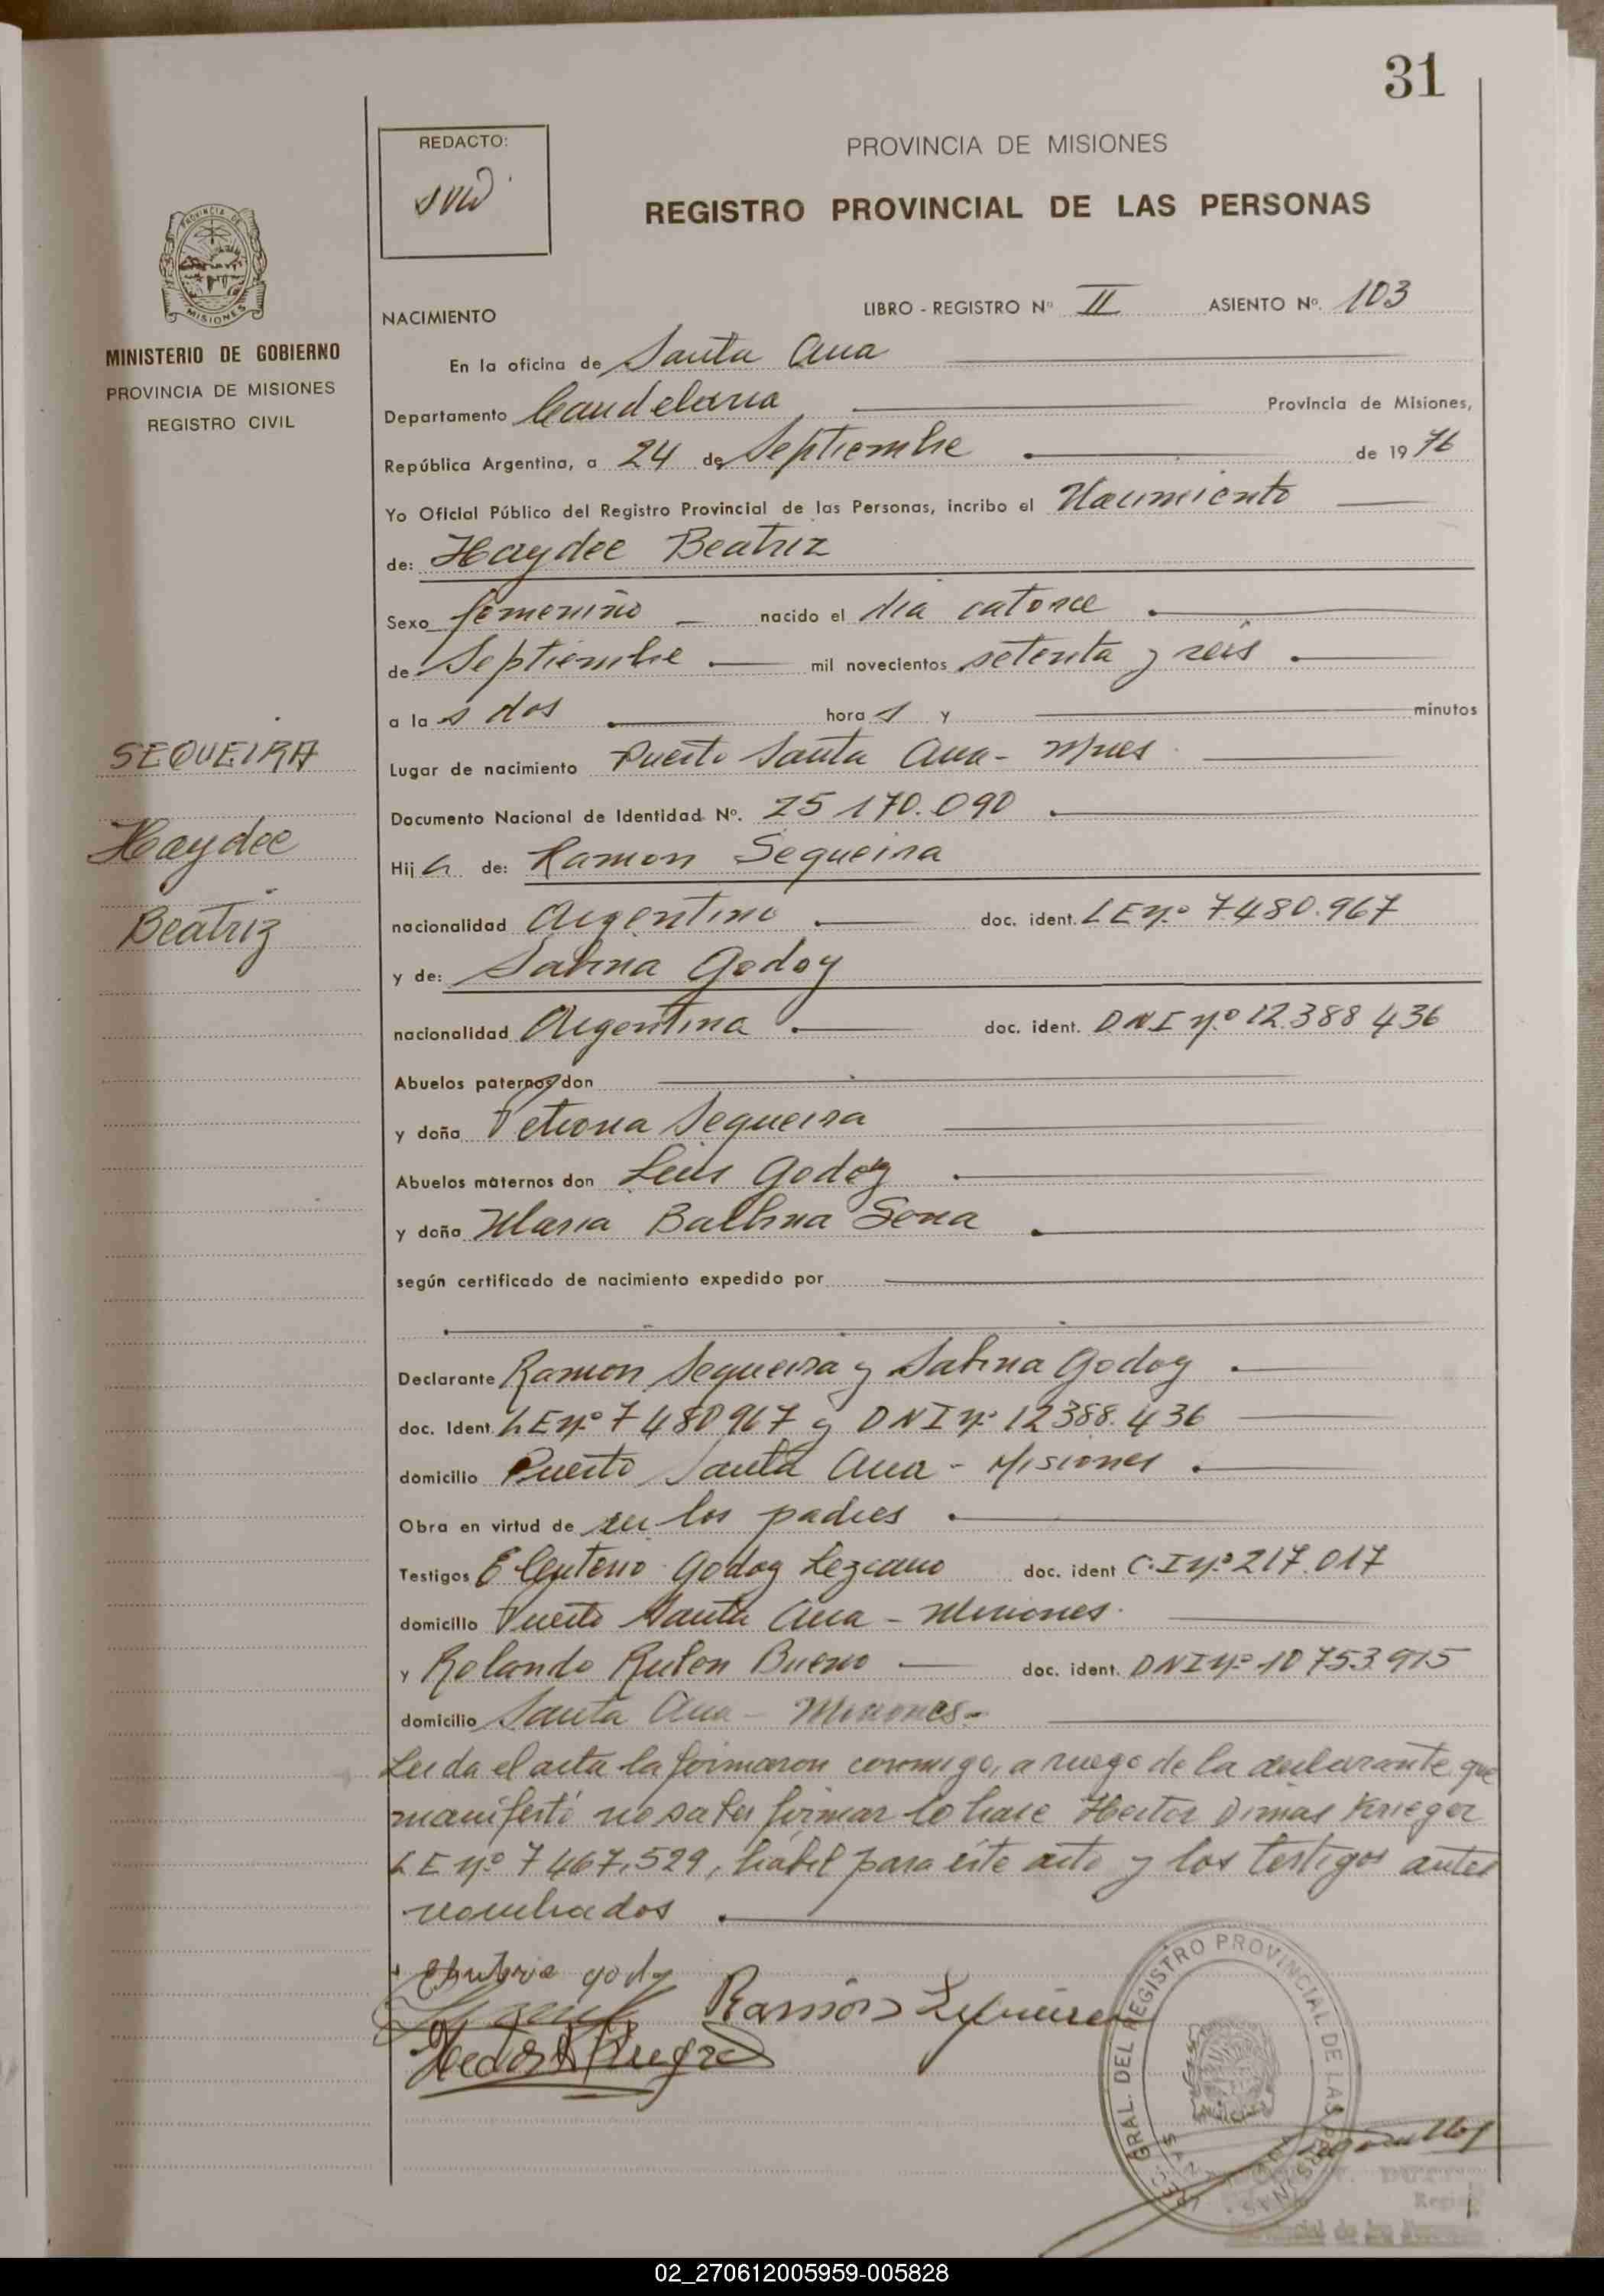 31
REDACTO:
PROVINCIA DE MISIONES
REGISTRO PROVINCIAL DE LAS PERSONAS
MISIONES
MINISTERIO DE GOBIERNO
PROVINCIA DE MISIONES
REGISTRO CIVIL
NACIMIENTO LIBRO - REGISTRO Nº II ASIENTO Nº. 103
En la oficina de Santa Ana
Departamento Candelaria Provincia de Misiones,
República Argentina, a 24 de Septiembre de 1976
Yo Oficial Público del Registro Provincial de las Personas, incribo el Nacimiento
de: Haydee Beatriz
Sexo femenino nacido el dia catorce
de Septiembre mil novecientos setenta y seis
a las dos horas y minutos
SEQUEIRA
Haydee
Beatriz
Lugar de nacimiento Puerto Santa Ana - Mnes
Documento Nacional de Identidad Nº. 25 170.090
Hija de: Ramon Sequeira
nacionalidad Argentino doc. ident. LE nº 7.480.967
y de: Sabina Godoy
nacionalidad Argentina doc. ident. DNI nº 12.388 436
Abuelos paternos don
y doña Petrona Sequeira
Abuelos maternos don Luis Godoy
y doña Maria Balbina Sena
según certificado de nacimiento expedido por
Declarante Ramon Sequeira y Sabina Godoy
doc. Ident. LE nº 7 480 967 y DNI nº 12 388.436
domicilio Puerto Santa Ana - Misiones
Obra en virtud de ser los padres
Testigos Eleuterio Godoy Lezcano doc. ident C.I nº 217.017
domicilio Puerto Santa Ana - Misiones.
y Rolando Ruben Bueno doc. ident. DNI nº 10 753 975
domicilio Santa Ana - Misiones.-
Leida el acta la firmaron conmigo, a ruego de la declarante que
manifestó no saber firmar lo hace Hector Dimas Krieger
LE nº 7 467.529, habil para éste acto y los testigos antes
nombrados
Ramón Sequeira
GRAL. DEL REGISTRO PROVINCIAL DE LAS PERSONAS
02_270612005959-005828